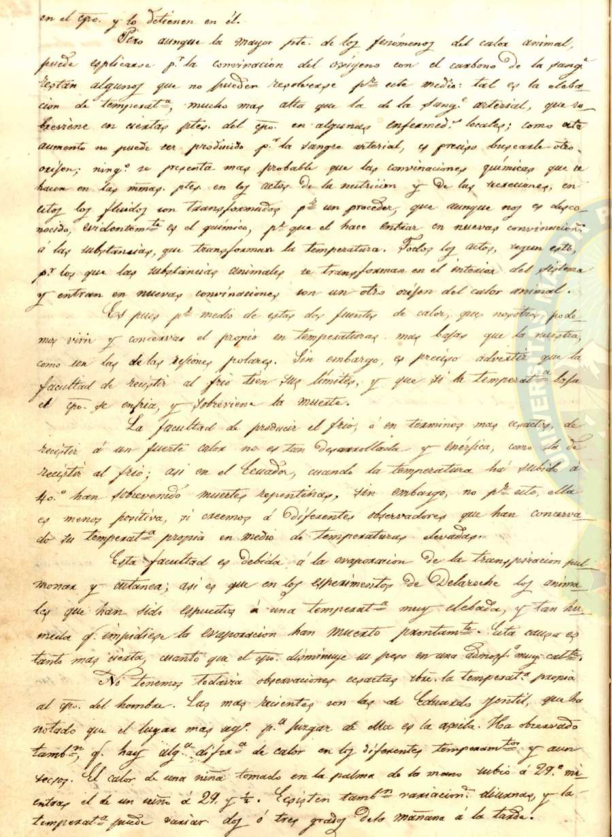 en el cpo. y lo detienen en él.
Pero aunque la mayor pte. de los fenómenos del calor animal,
puede esplicarse pr. la convinacion del oxígeno con el carbono de la sangr.
restán algunos que no pueden resolverse pr. este medio: tal es la eleba
cion de temperata. mucho mas alta que la de la sangr. arterial, que so
breviene en ciertas ptes. del cpo. en algunas enfermeds. locales; como este
aumento no puede ser producido pr. la sangre arterial, es preciso buscarle otro
orijen; ningo. se presenta mas probable que las convinaciones químicas que se
hacen en las mmas. ptes. en los actos de la nutricion y de las secreciones, en
estos los fluidos son transformados pr. un proceder, que aunque nos es desco
nocido, evidentemte. es el químico, pr. que el hace entrar en nuevas convinacions.
á las substancias, que transforman la temperatura. Todos los actos, segun esto,
pr. los que las substancias animales se transforman en el interior del sistema
y entran en nuevas convinaciones son un otro orijen del calor animal.
Es pues pr. medio de estas dos fuentes de calor, que nosotros pode
mos vivir y concervar el propio en temperaturas mas bajas que la nuestra,
como son las de las rejiones polares. Sin embargo, es preciso advertir que la
facultad de resistir al frio tien sus límites, y que si la temperata. baja
el cpo. se enfria, y sobreviene la muerte.
La facultad de producir el frio, ó en terminos mas esactos, de
resistir á un fuerte calor no es tan desarrollada y enérjica, como la de
resistir al frio; asi en el Ecuador, cuando la temperatura ha subido á
40.° han sobrevenido muertes repentinas. Sin embargo, no pr. esto, ella
es menos positiva, si creemos á diferentes observadores que han concerva
do su temperata. propia en medio de temperaturas elevadas.
Esta facultad es debida á la evaporacion de la transpiracion pul
monar y cutanea; asi es que en los esperimentos de Delaroche los anima
les que han sido espuestos á una temperata. muy elebada, y tan hu
meda q. impidiese la evaporacion han muerto prontamte. Esta causa es
tanto mas cierta, cuanto que el cpo. disminuye su peso en una atmosfa. muy calte.
No tenemos todavia observaciones esactas sbre. la temperata. propia
al cpo. del hombre. Las mas recientes son las de Eduardo Gentil, que ha
notado que el lugar mas apo. pa. juzgar de ella es la axila. Ha observado
tambn. q. hay alga. difera. de calor en los diferentes temperamtos. y aun
secsos. El calor de una niña tomado en la palma de la mano subio á 29.° mi
entras el de un niño á 29. y ½. Ecsisten tambn. variacions. diurnas, y la
temperata. puede variar dos ó tres grados de la mañana á la tarde.